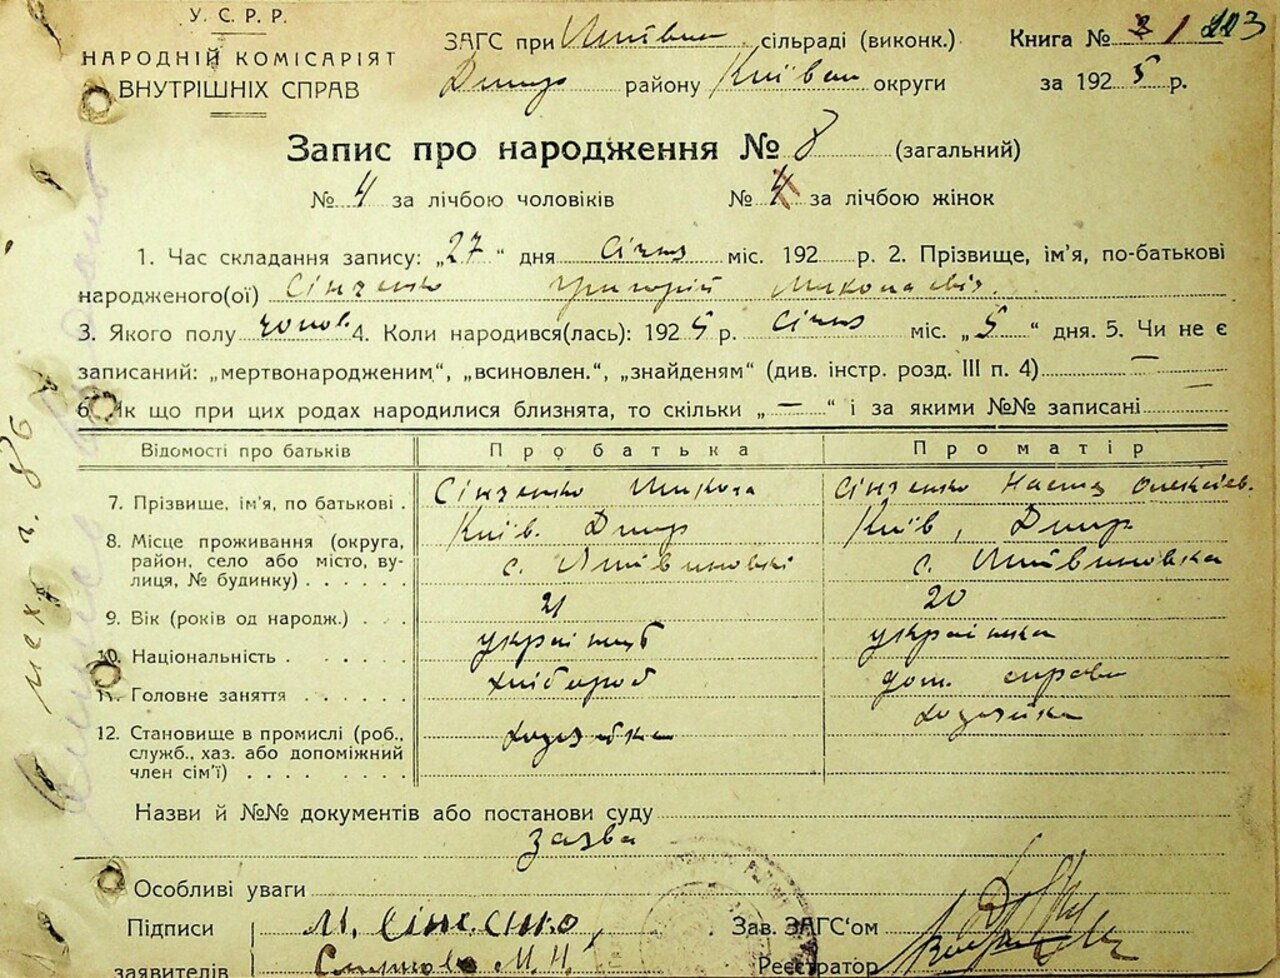 У. С. Р. Р.
НАРОДНІЙ КОМІСАРІЯТ
ВНУТРІШНІХ СПРАВ
ЗАГС при сільраді (виконк.) Книга №
району округи за 1925 р.
Запис про народження № 8 (загальний)
№ 4 за лічбою чоловіків № за лічбою жінок
1. Час складання запису: „27“ дня Січня міс. 192 р. 2. Прізвище, ім'я, по-батькові
народженого(ої) Сінзенко Григорій Миколаєвіч.
3. Якого полу чолов. 4. Коли народився(лась): 1925 р. Січня міс. „5“ дня. 5. Чи не є
записаний: „мертвонародженим“, „всиновлен.“, „знайденям“ (див. інстр. розд. III п. 4) —
6. Як що при цих родах народилися близнята, то скільки „—“ і за якими №№ записані —
Відомості про батьків Про батька Про матір
7. Прізвище, ім'я, по батькові . Сінзенко Микола Сінзенко Настя Олексієв.
8. Місце проживання (округа, район, село або місто, вулиця, № будинку) . . . . . . Київ. Димер с. Литвиновкі Київ, Димер с. Литвиновка
9. Вік (років од народж.) . . . 21 20
10. Національність . . . . . . українець українка
11. Головне заняття . . . . . . хлібороб дом. справи
12. Становище в промислі (роб., служб., хаз. або допоміжний член сім'ї) . . . . . . . . хозяйка
Назви й №№ документів або постанови суду
заява
Особливі уваги
Підписи М. Зав. ЗАГС'ом
заявителів М. Н. Реєстратор